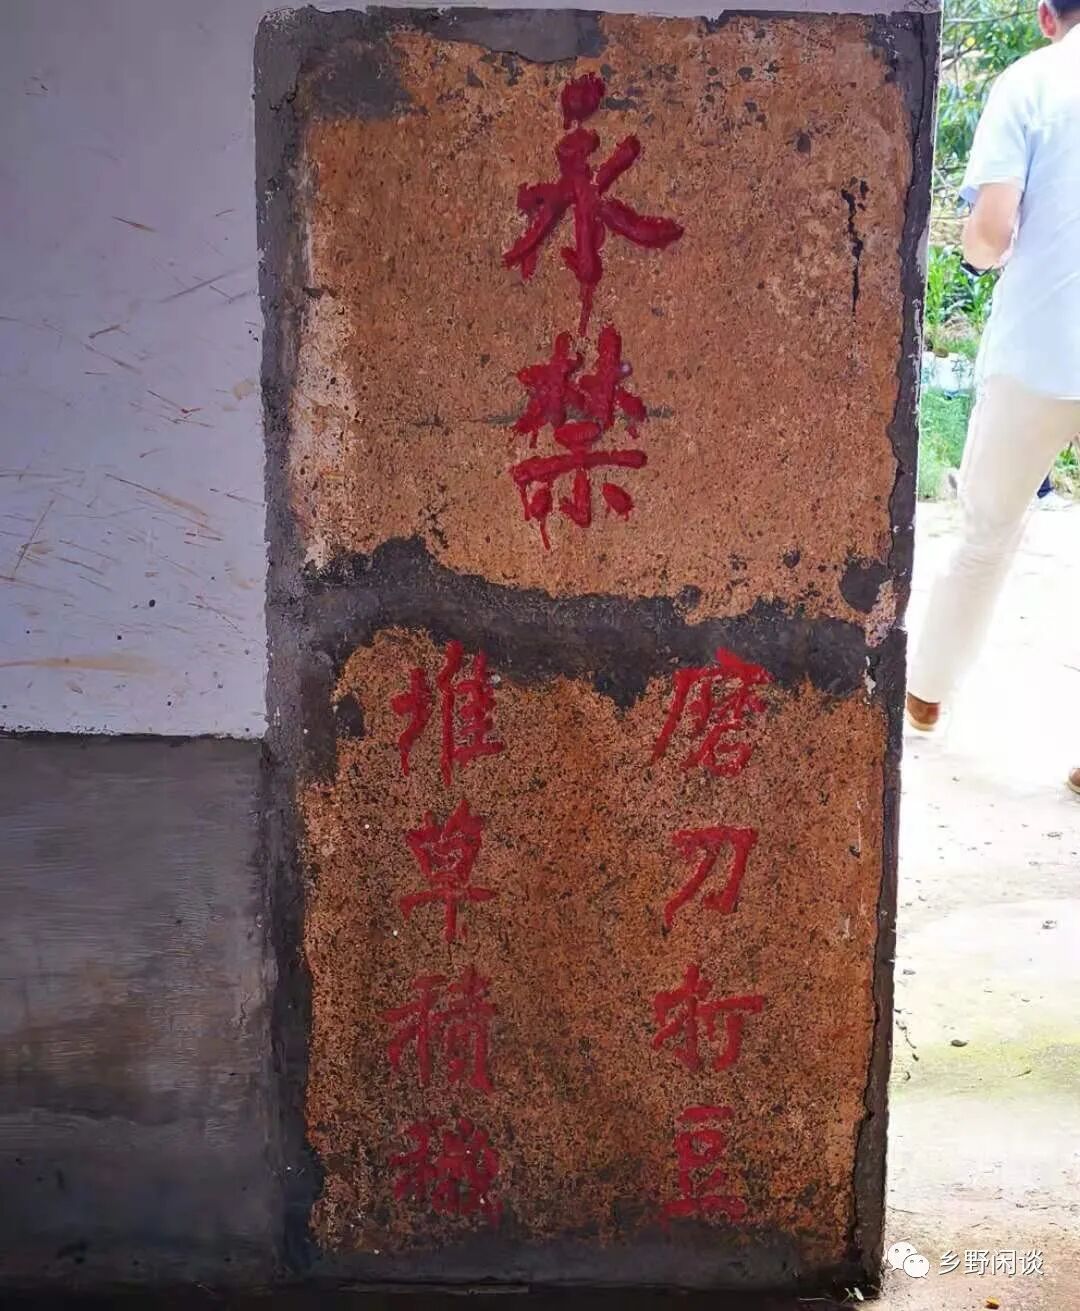 永禁
磨刀打豆
堆草積穢
乡野闲谈